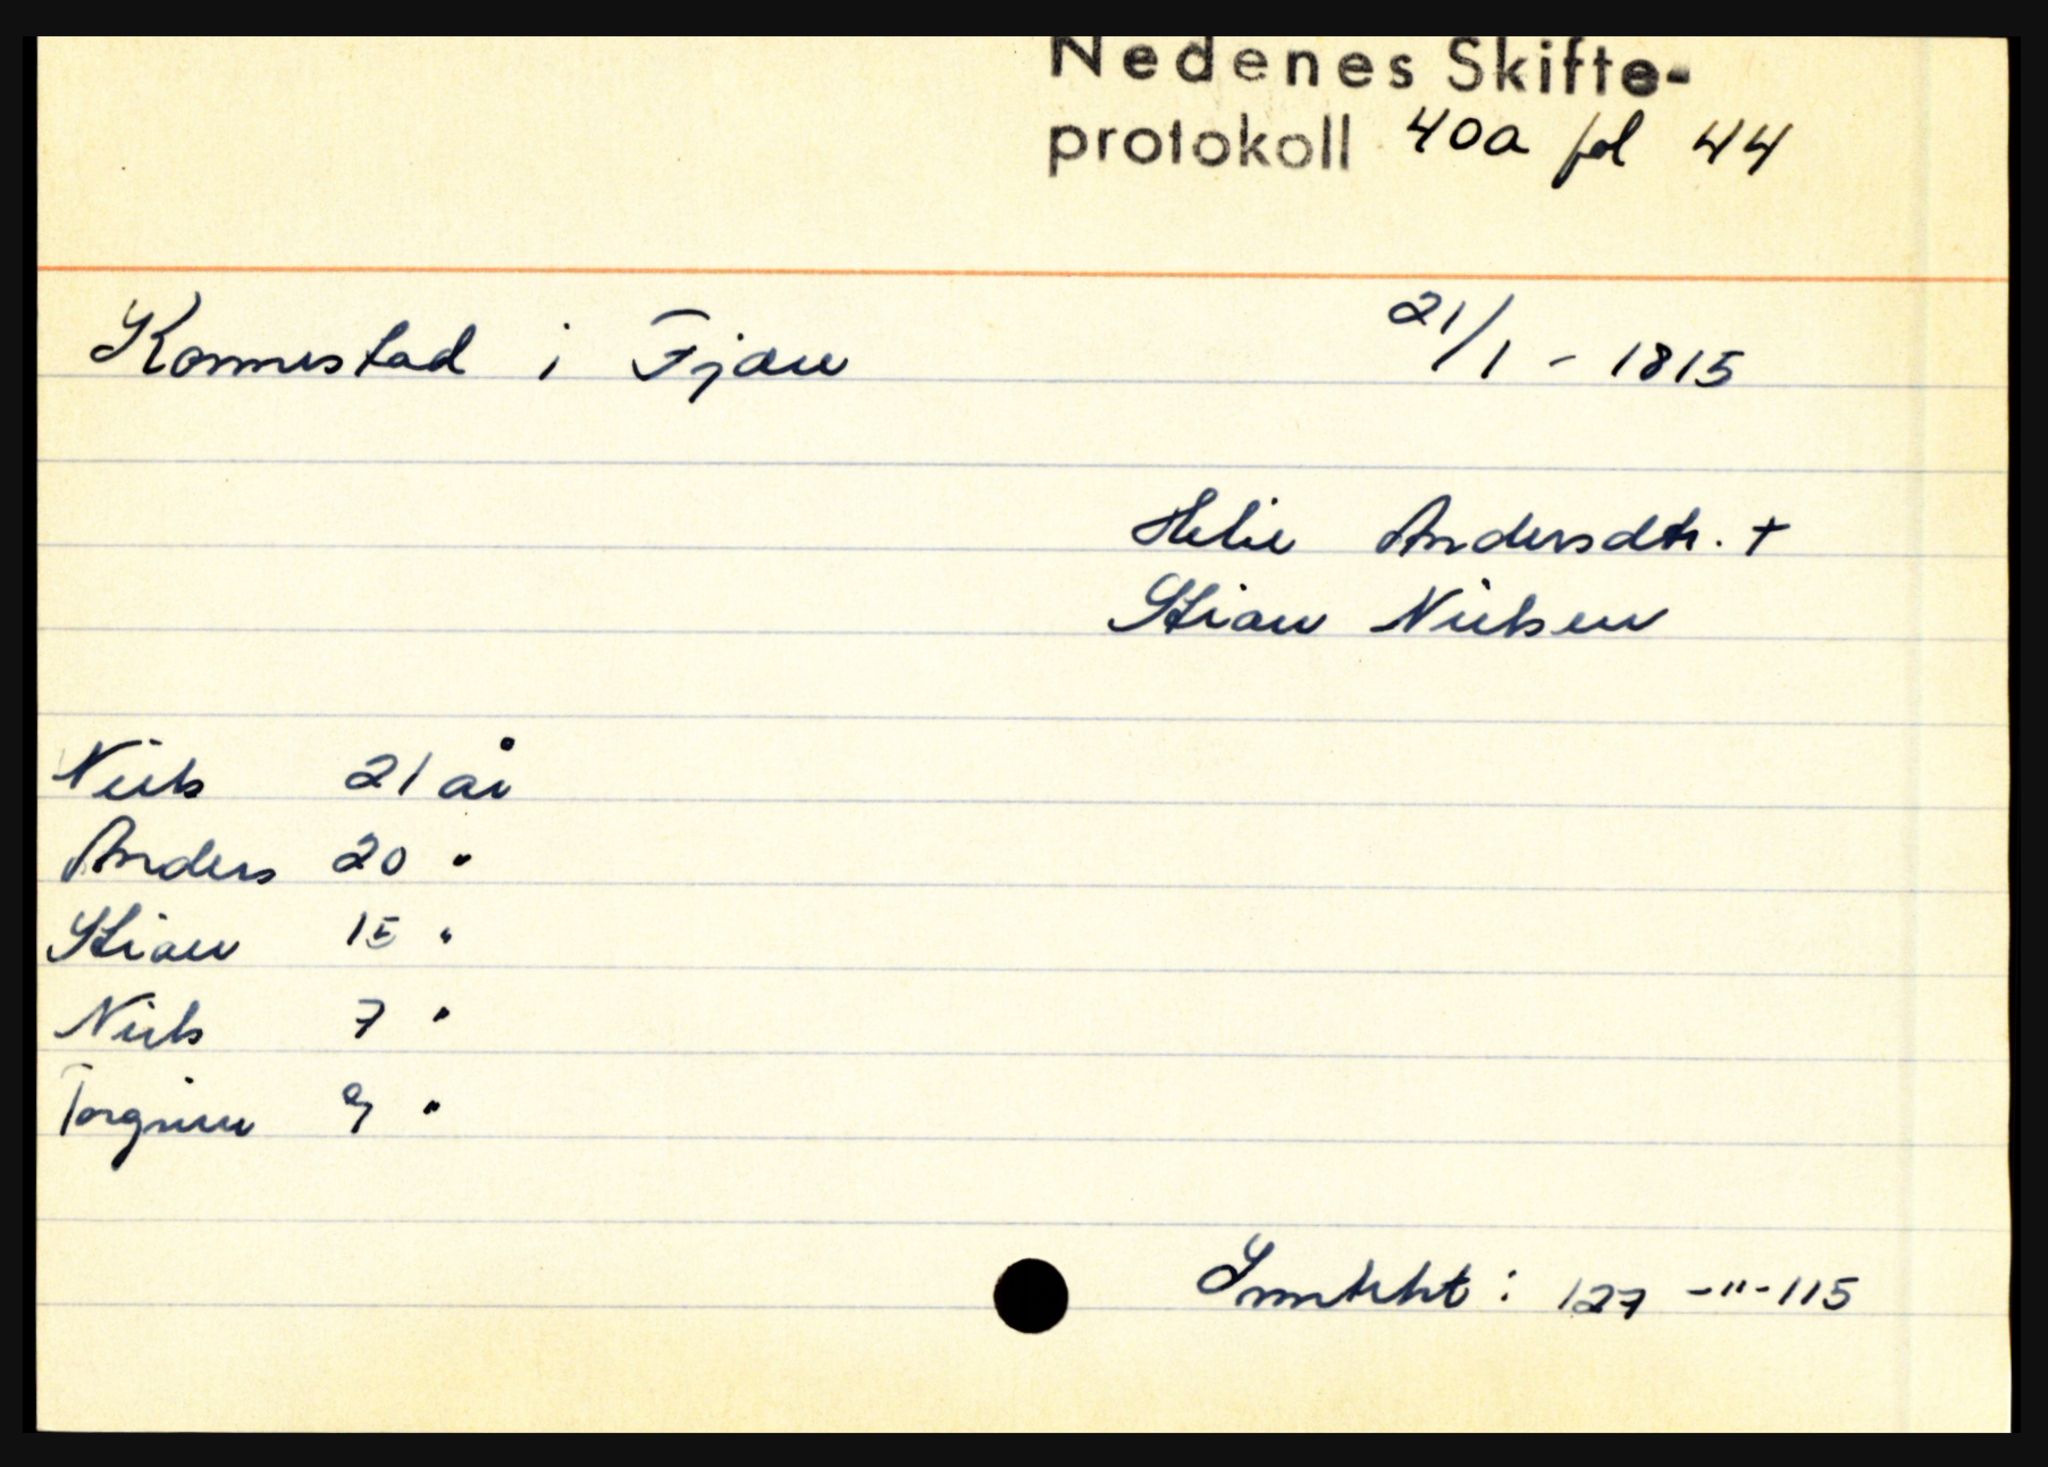 Nedenes Skifte-
protokoll 40a fol 44
Konnestad i Fjære 21/1 - 1815
Helie Andersdtr. +
Stian Nielsen
Niels 21 år
Anders 20 "
Stian 15 "
Niels 7 "
Torgrim 9 "
127 -"- 115